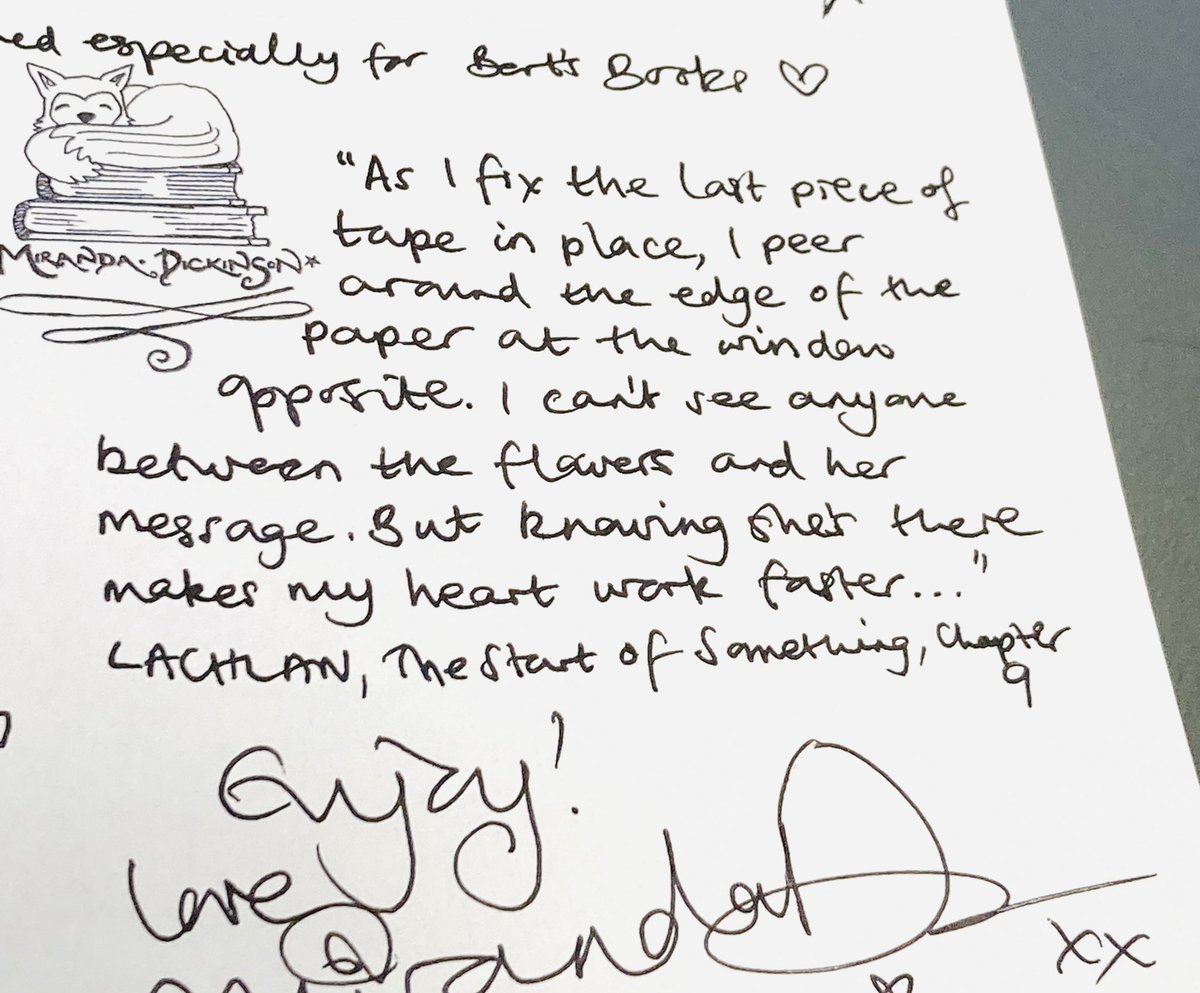 especially for Bert's Books ♡
MIRANDA DICKINSON*
"As I fix the last piece of
tape in place, I peer
around the edge of the
paper at the window
opposite. I can't see anyone
between the flowers and her
message. But knowing she's there
makes my heart work faster..."
LACHLAN, The Start of Something, Chapter
9
Enjoy!
love
Miranda
xx